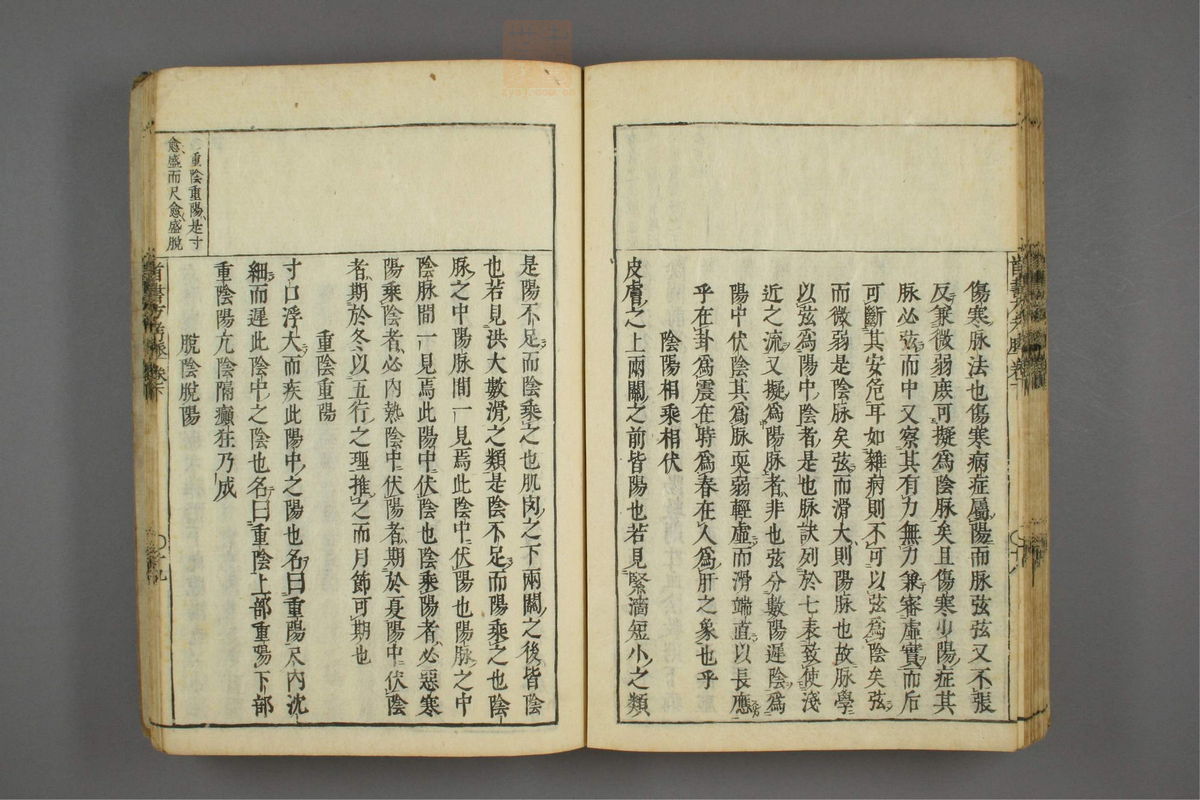 傷寒脉法也傷寒病症屬陽而脉弦弦又不張
反兼微弱庶可擬爲陰脉矣且傷寒少陽症其
脉必弦而中又察其有力無力兼審虛實而后
可斷其安危耳如雜病則不可以弦爲陰矣弦
而微弱是陰脉矣弦而滑大則陽脉也故脉學
以弦爲陽中陰者是也脉訣列於七表致使淺
近之流又擬爲陽脉者非也弦分數陽遲陰爲
陽中伏陰其爲脉耎弱輕虛而滑端直以長應
乎在卦爲震在時爲春在人爲肝之象也乎
陰陽相乘相伏
皮膚之上兩關之前皆陽也若見緊濇短小之類
是陽不足而陰乘之也肌肉之下兩關之後皆陰
也若見洪大數滑之類是陰不足而陽乘之也陰
脉之中陽脉間一見焉此陰中伏陽也陽脉之中
陰脉間一見焉此陽中伏陰也陰乘陽者必惡寒
陽乘陰者必內熱陰中伏陽者期於夏陽中伏陰
者期於冬以五行之理推之而月節可期也
重陰重陽
寸口浮大而疾此陽中之陽也名曰重陽尺內沈
細而遲此陰中之陰也名曰重陰上部重陽下部
重陰陽亢陰隔癲狂乃成
脫陰脫陽
重陰重陽是寸
愈盛而尺愈盛脫